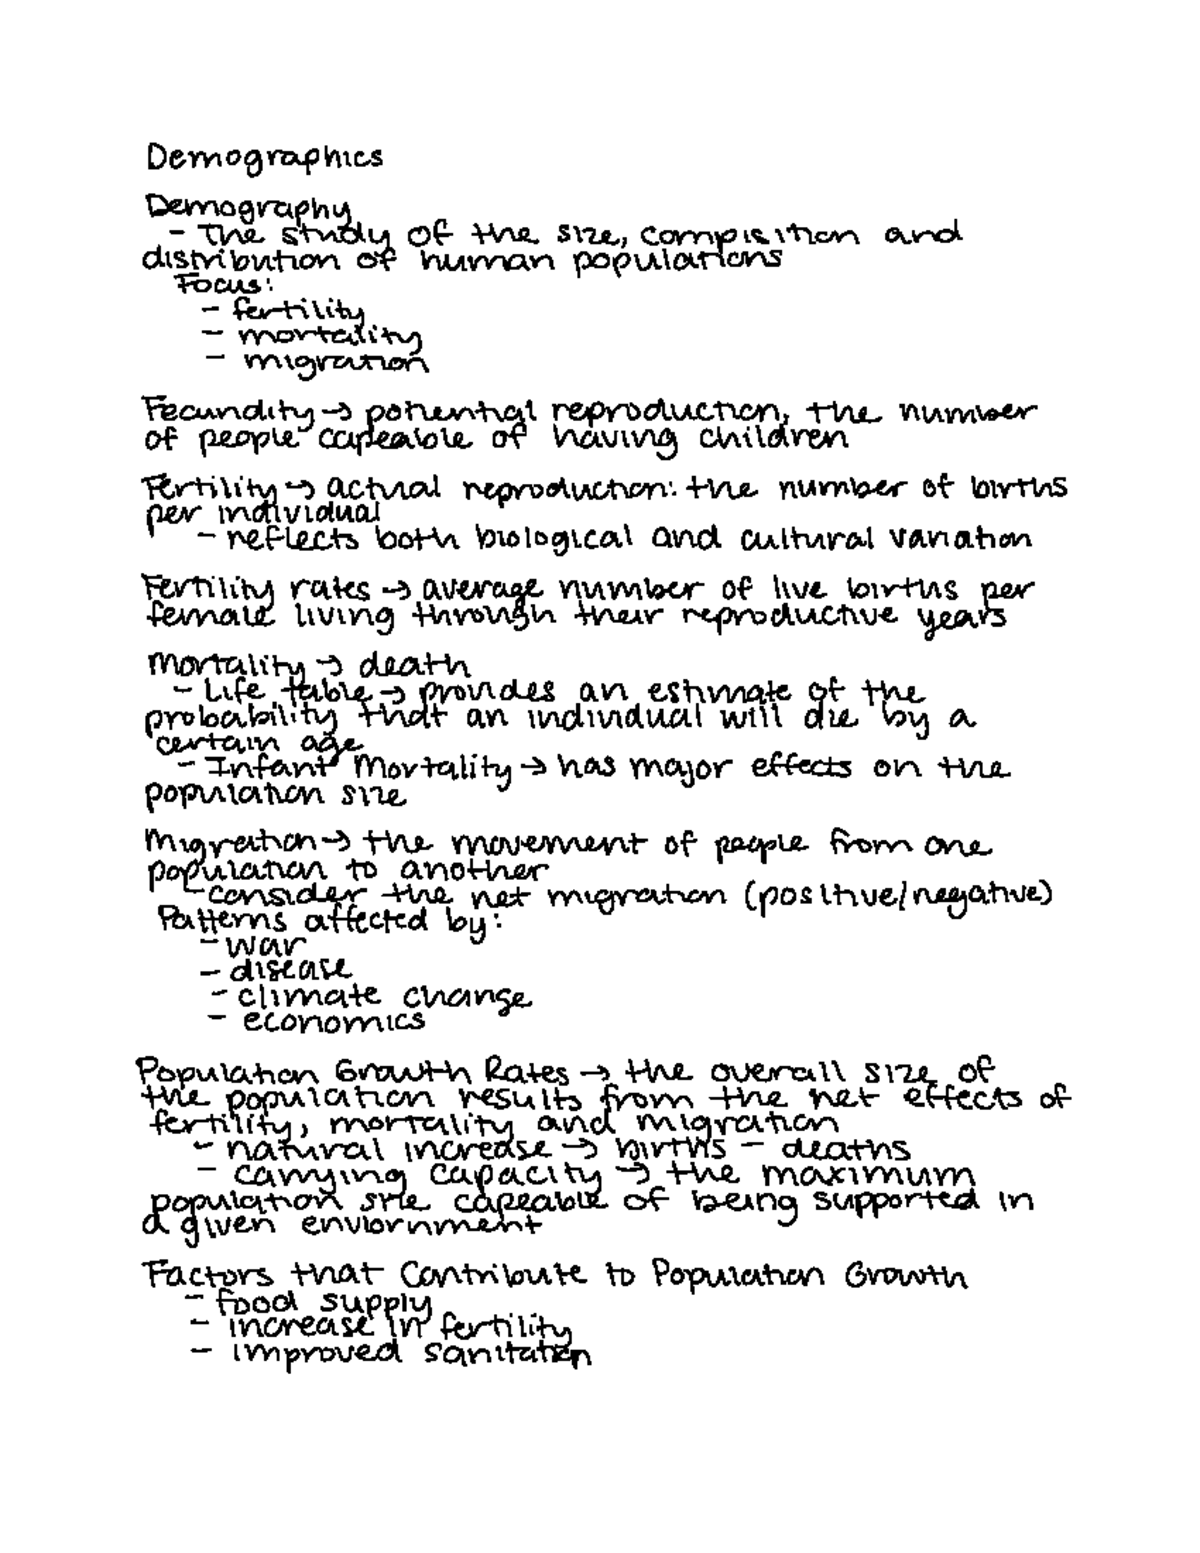 Demographics
Demography
- The study of the size, composition and
distribution of human populations
Focus:
- fertility
- mortality
- migration
Fecundity → potential reproduction, the number
of people capeable of having children
Fertility → actual reproduction: the number of births
per individual
- reflects both biological and cultural variation
Fertility rates → average number of live births per
female living through their reproductive years
Mortality → death
- Life table → provides an estimate of the
probability that an individual will die by a
certain age
- Infant Mortality → has major effects on the
population size
Migration → the movement of people from one
population to another
- consider the net migration (positive/negative)
Patterns affected by:
- war
- disease
- climate change
- economics
Population Growth Rates → the overall size of
the population results from the net effects of
fertility, mortality and migration
- natural increase → births - deaths
- carrying capacity → the maximum
population size capeable of being supported in
a given enviornment
Factors that Contribute to Population Growth
- food supply
- increase in fertility
- improved sanitation